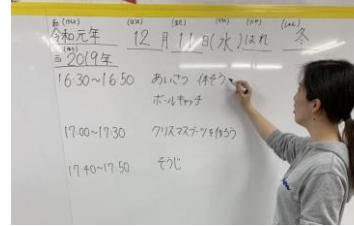 令和元年 12月11日(水) はれ 冬
2019年
16:30~16:50 あいさつ 体そう
ボールキャッチ
17:00~17:30 クリスマスブーツを作ろう
17:40~17:50 そうじ